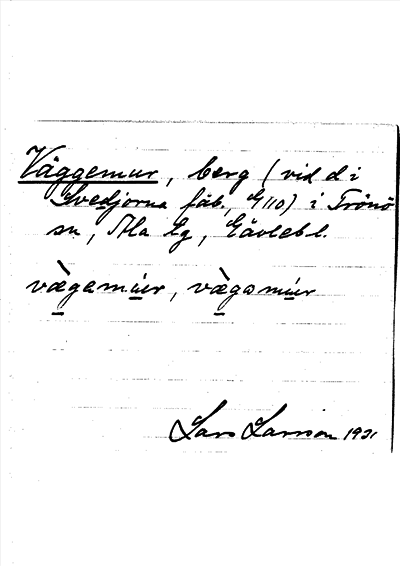 Väggemur, berg (vid d i
Svedjorna fäb., G110) i Trönö
sn, Ala tg, Gävlebl.
væ̀gemúr, væ̀gomúr
Lars Larsson 1931